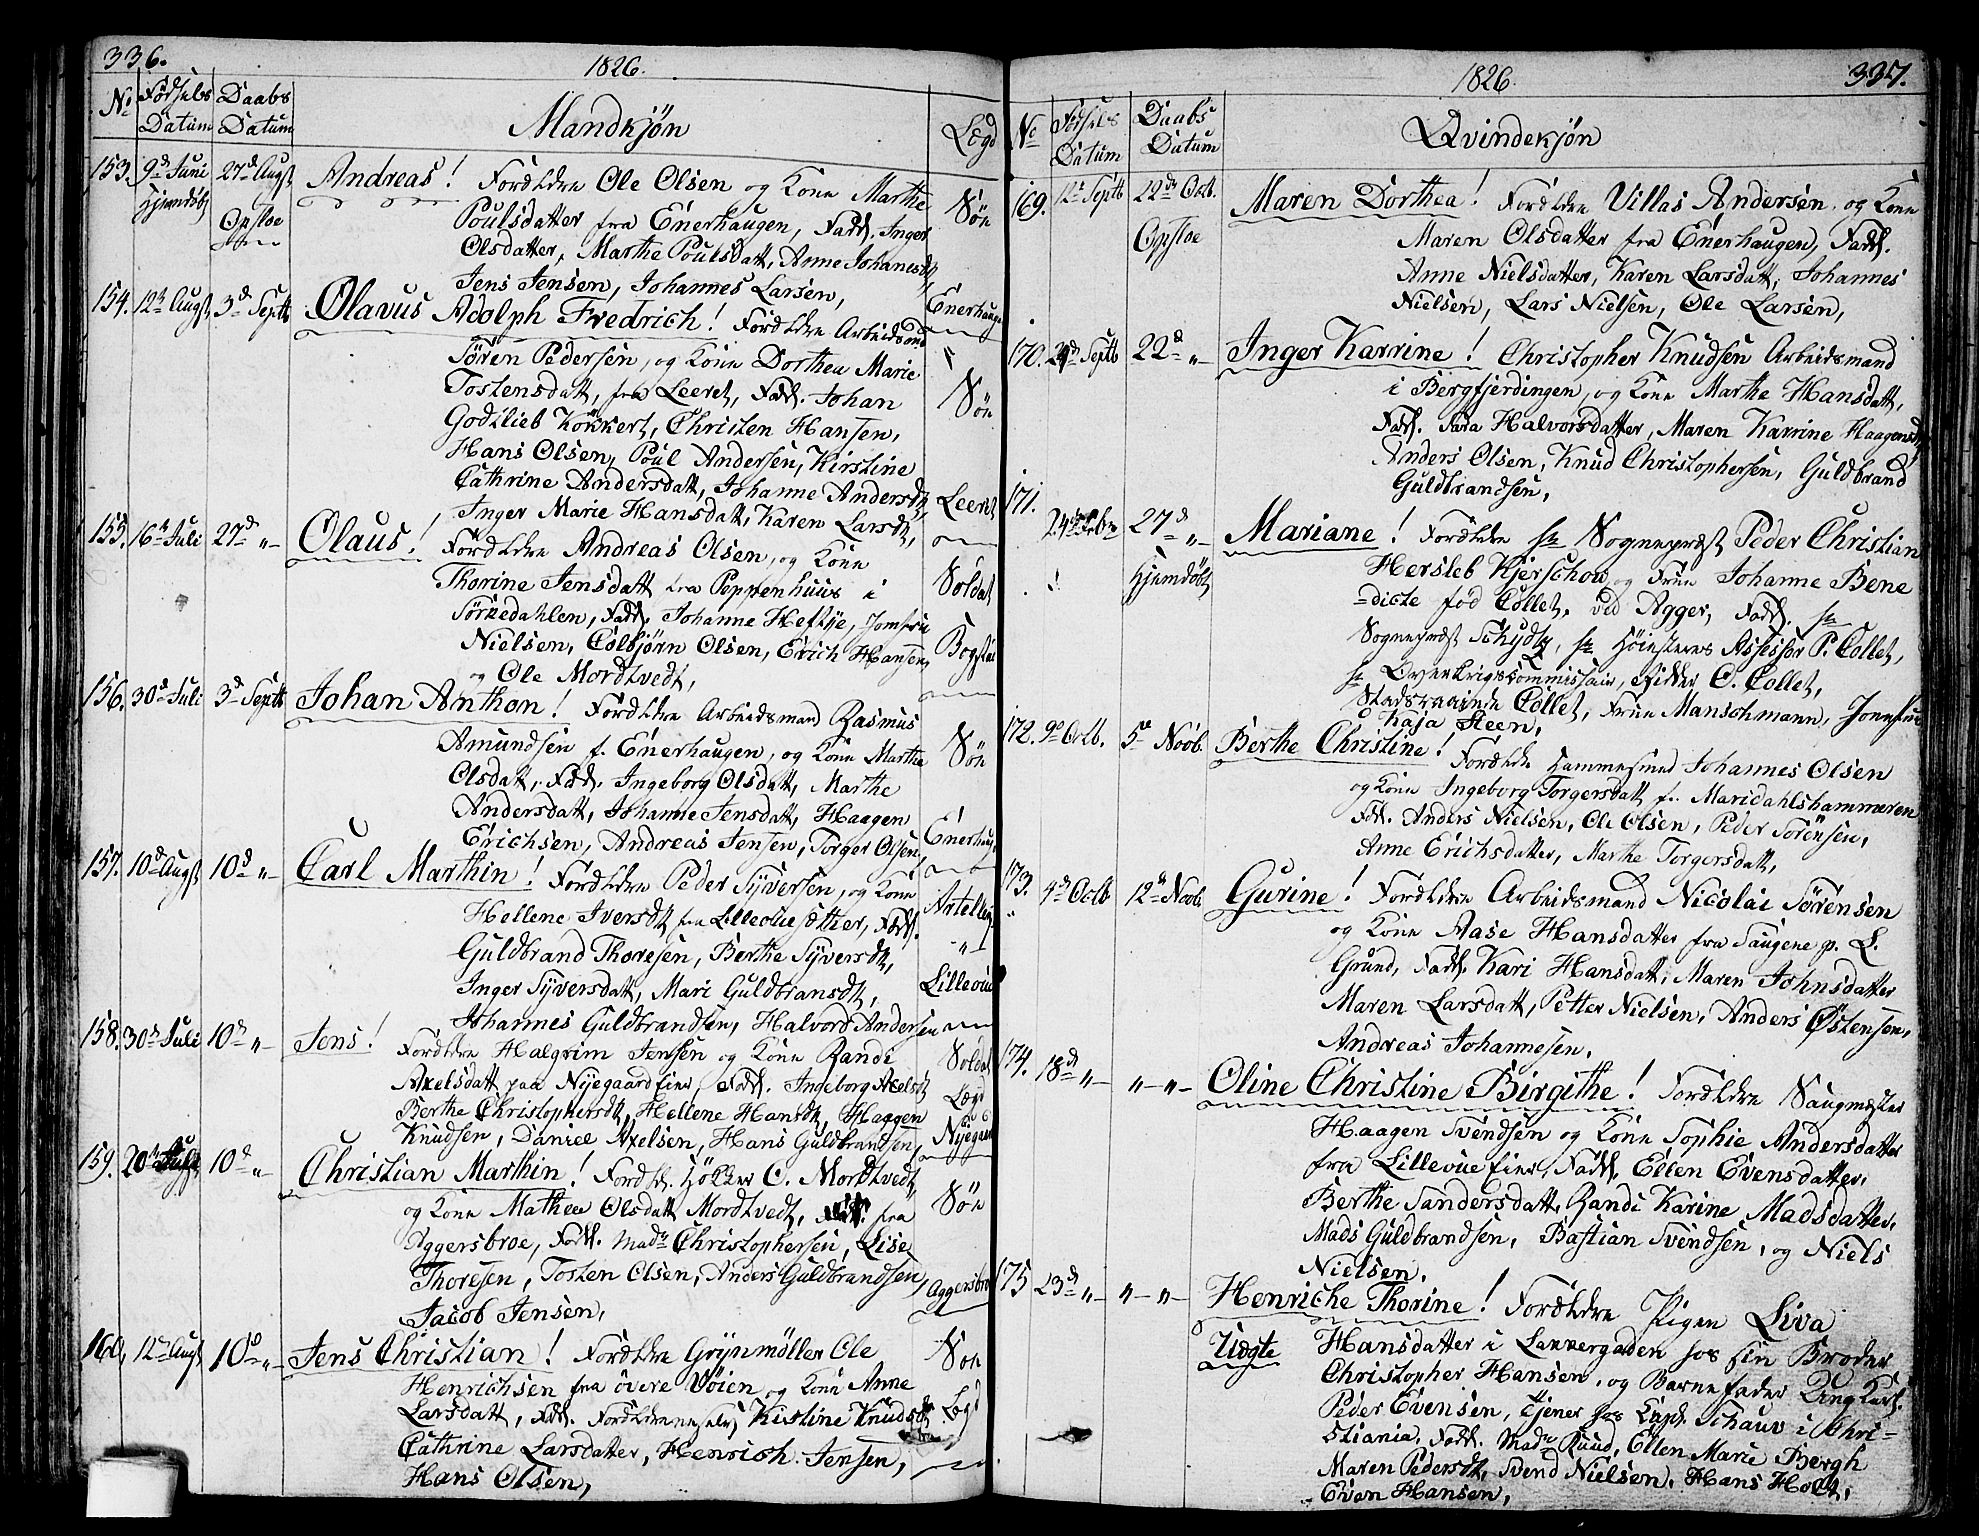 336.
1826.
No Fødsels Datum Daabs Datum Mandkjøn Lægd
153. 9d Juni Hjemdøbt 27d Augst Opsloe Andreas! Forældre Ole Olsen og Kone Marthe Søn
Poulsdatter fra Enerhaugen, Fadd. Inger
Olsdatter, Marthe Poulsdatt, Anne Johanesdt,
Jens Jensen, Johannes Larsen, Enerhaug
154. 12te Augst 3d Septb Olavus Adolph Fredrich! Forældre Arbeidsmd
Søren Pedersen, og Kone Dorthea Marie
Tostensdatt, fra Leeret, Fadd. Johan Søn
Godtlieb Køkkert, Christen Hansen,
Hans Olsen, Poul Andersen, Kirstine
Cathrine Andersdatt, Johanne Andersdt, Leeret
Inger Marie Hansdatt, Karen Larsdt,
155. 16te Juli 27d "- Olaus! Forældre Andreas Olsen, og Kone
Thorine Jensdatt fra Peppenhuus i Soldat
Sørkedahlen, Fadd. Johanne Heftye, Jomfru
Nielsen, Colbjørn Olsen, Erich Hansen, Bogstad
og Ole Mordtvedt,
156. 30d Juli 3d Septb Johan Anthon! Forældre Arbeidsmand Rasmus
Amundsen f. Enerhaugen, og Kone Marthe Søn
Olsdatt, Fadd. Ingeborg Olsdatt, Marthe
Andersdatt, Johanne Jensdatt, Haagen
Erichsen, Andreas Jensen, Torger Olsen, Enerhaug
157. 10d Augst 10d "- Carl Marthin! Forældre Peder Syversen, og Kone
Hellene Iversdt fra Lillevue Fadd.
Guldbrand Thoresen, Berthe Syversdt,
Inger Syversdatt, Mari Guldbransdt, Lillevue
Johannes Guldbrandsen, Halvord Andersen
158. 30d Juli 10d "- Jens! Forældre Halgrim Jensen og Kone Randi Soldat
Axelsdatt paa Nijegaardseier, Fadd. Ingeborg Axelsdt Lægd
Berthe Christophersdt, Hellene Hansdt, Haagen
Knudsen, Daniel Axelsen, Hans Guldbrandsen, Nijegaard
159. 20d 10d "- Christian Marthin! Foræld. Høkker O. Mordtvedt,
og Kone Mathea Olsdatt Mordtvedt, fra Søn
Aggersbroe, Fadd. Mad. Christophersen, Lise
Thoresen, Tosten Olsen, Anders Guldbrandsen, Aggersbro
Jacob Jensen,
160. 12te Augst 10d "- Jens Christian! Forældre Grynmøller Ole Søn
Henrichsen fra övere Vöien og Kone Anne
Larsdatt, Fadd. Forældrene selv, Kirstine Knudsdt Lægd
Cathrine Larsdatter, Henrich Jensen,
Hans Olsen,
1826. 337.
No Fødsels Datum Daabs Datum Qvindekjøn
169. 12te Septb 22de Octb. Opsloe Maren Dorthea! Forældre Villas Andersen og Kone
Maren Olsdatter fra Enerhaugen, Fadd.
Anne Nielsdatter, Karen Larsdatt, Johannes
Nielsen, Lars Nielsen, Ole Larsen,
170. Septb 22d "- Inger Karrine! Christopher Knudsen Arbeidsmand
i Bergfjerdingen, og Kone Marthe Hansdatt,
Fadd. Sara Halvorsdatter, Maren Karrine Haagensdt,
Anders Olsen, Knud Christophersen, Guldbrand
Guldbrandsen,
171. 27d "- Hjemdøbt Mariane! Forældre Hr Sognepræst Peder Christian
Hersleb Kjerschow og Frue Johanne Bene
-dicte fød Collet, ved Agger, Fadd. Hr
Sognepræst Schydtz, Hr Høiesterets Assessor P. Collet,
Hr Overkrigscommissair, Ridder O. Collet,
Collet, Frue Manschmann, Jomfru
Kaja Steen,
172. 9d Octb. 5te Novb. Berthe Christine! Forældre Hammersmed Johannes Olsen
og Kone Ingeborg Torgersdatt f. Maridahlshammeren
Fdd. Anders Nielsen, Ole Olsen, Peder Sørensen,
Anne Erichsdatter, Marthe Torgersdatt,
173. 4de Octb 12te Novb. Gurine! Forældre Arbeidsmand Nicolai Sørensen
og Kone Aase Hansdatter fra Saugene p. L.
Grund, Fadd. Kari Hansdatt, Maren Johnsdatter
Maren Larsdatt, Petter Nielsen, Anders Østensen,
Andreas Johannesen,
174. 18d "- "-"- Oline Christine Birgithe! Forældre Saugmester
Haagen Svendsen og Kone Sophie Andersdatter
fra Lillevueseier, Fadd. Ellen Evensdatter,
Berthe Sandersdatt, Randi Karine Madsdatter,
Mads Guldbrandsen, Bastian Svendsen, og Niels
Nielsen,
175 23d "- "-"- Henriche Thorine! Forældre Pigen Siva
Uægte Hansdatter i Lakkergaden hos sin Broder
Christopher Hansen, og Barnefader Ung Karl
Peder Evensen, tjener hos Capt. Schauv i Chri-
stiania, Fadd. Mad. Ruud, Ellen Marie Bergh
Maren Pedersdt, Svend Nielsen, Hans Holt,
Even Hansen,